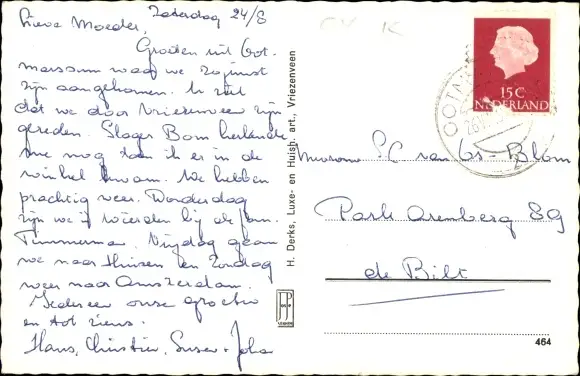 Zaterdag 24/8
Lieve Moeder,
Groeten uit Oot-
marsum waar we zojuist
zijn aangekomen. Ik stel
dat we door Vriezenveen zijn
gereden. Slager Bom herkende
me nog toen ik er in de
winkel kwam. We hebben
prachtig weer. Donderdag
zijn we in Wierden bij de fam.
Timmerman. Vrijdag gaan
we naar Huizen en Zondag
weer naar Amsterdam.
Iedereen onze groeten
en tot ziens.
Hans, Christien, Susan + Joha
H. Derks, Luxe- en Huish. art, Vriezenveen
JP
LEUSDEN
15 C
NEDERLAND
OOTM
Mevrouw S.C. van Os-Blom
Park Arenberg 89
de Bilt
464